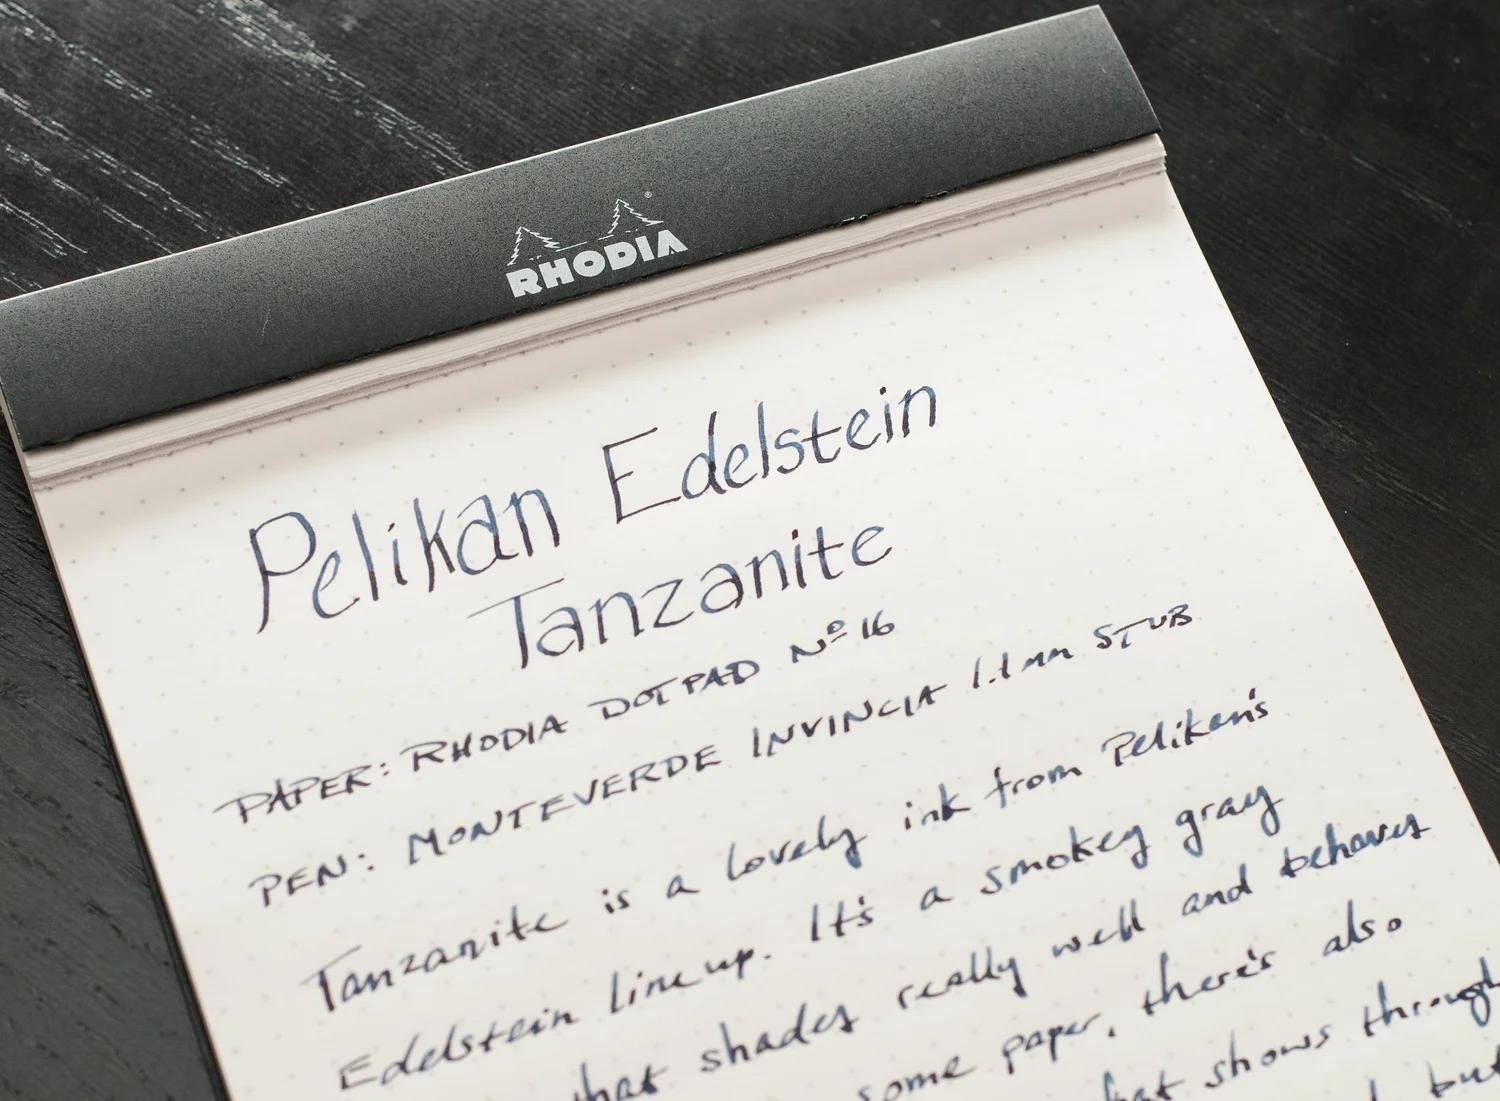 RHODIA
Pelikan Edelstein
Tanzanite
PAPER: RHODIA DOTPAD Nº 16
PEN: MONTEVERDE INVINCIA 1.1mm STUB
Tanzanite is a lovely ink from Pelikan's
Edelstein lineup. It's a smokey gray
that shades really well and behaves
some paper, there's also
that shows through
but